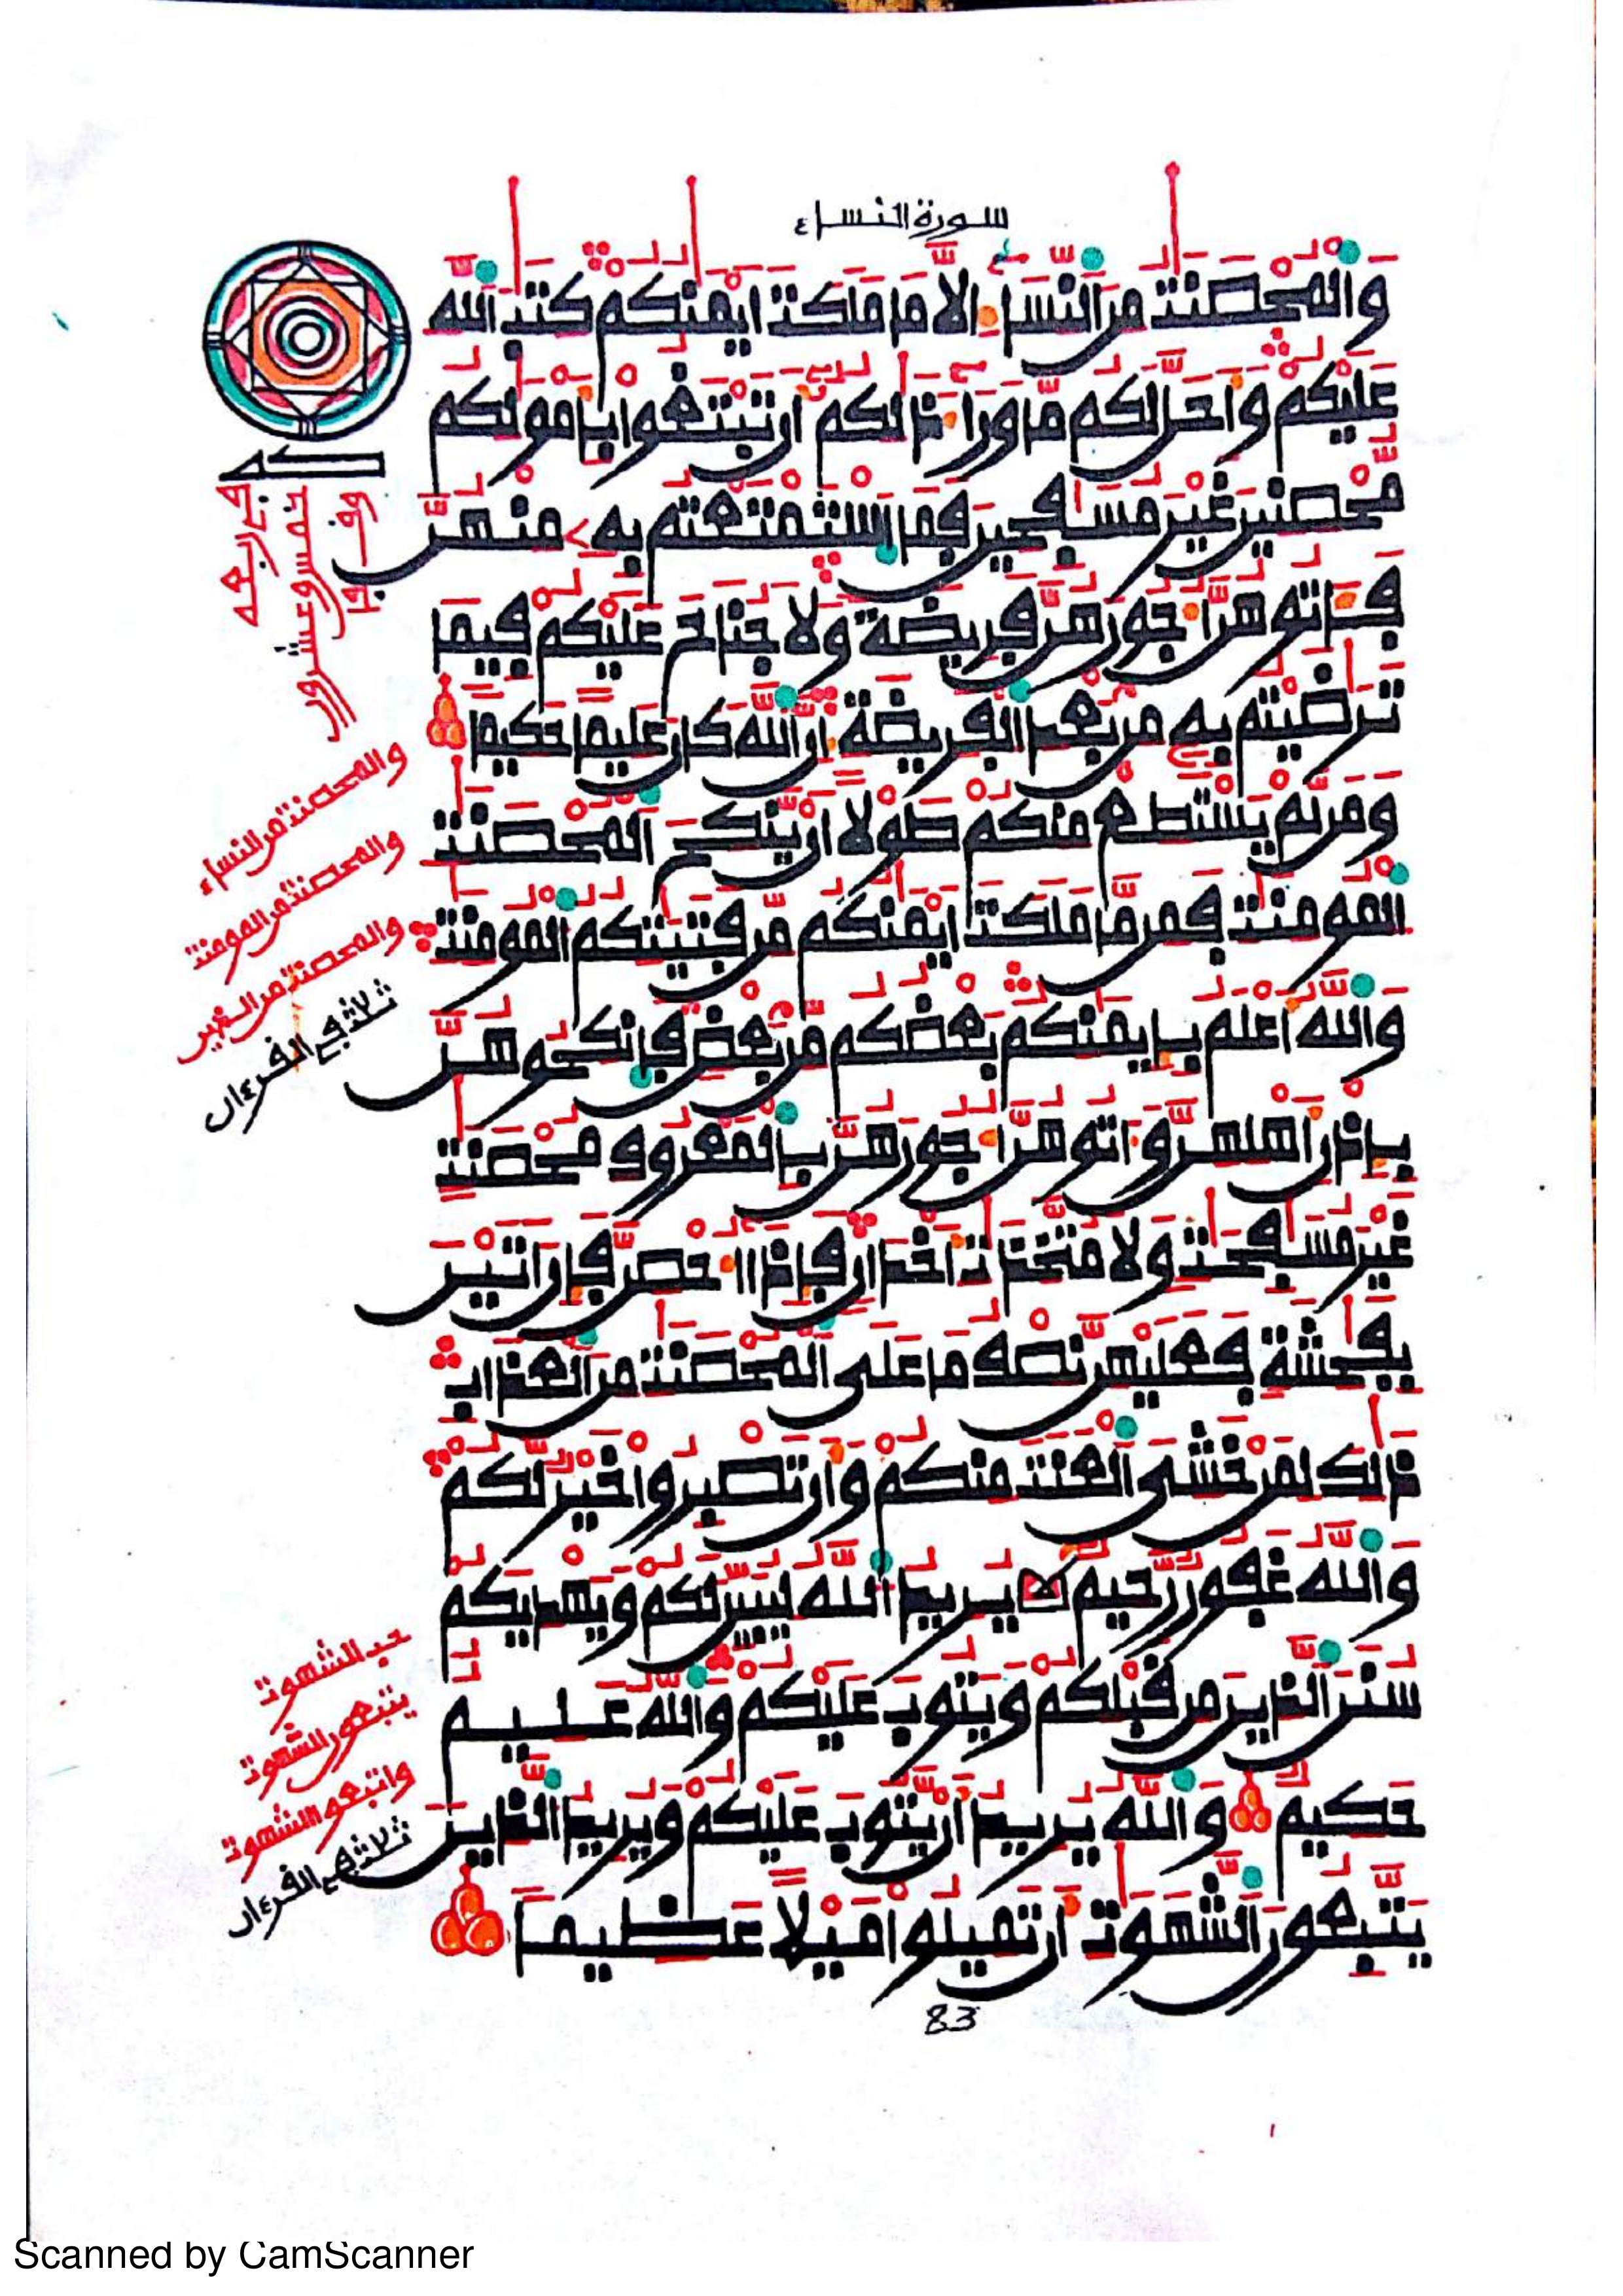 سورة النساء
وَالْمُحْصَنَٰتُ مِنَ النِّسَآءِ الَّا مَا مَلَكَتَ اَيْمَٰنُكُمْ كِتَٰبَ اللَّهِ
عَلَيْكُمْ وَأَحَلَّ لَكُم مَّا وَرَآءَ ذَٰلِكُمُۥ أَن تَبْتَغُوا بِأَمْوَٰلِكُم
مُّحْصِنِينَ غَيْرَ مُسَٰفِحِينَ فَمَا اَسْتَمْتَعْتُم بِهِۦ مِنْهُنَّ
فَـَٔاتُوهُنَّ أُجُورَهُنَّ فَرِيضَةً وَلَا جُنَاحَ عَلَيْكُمْ فِيمَا
تَرَٰضَيْتُم بِهِۦ مِنۢ بَعْدِ الْفَرِيضَةِ إِنَّ اللَّهَ كَانَ عَلِيمًا حَكِيمًا
وَمَن لَّمْ يَسْتَطِعْ مِنكُمْ طَوْلًا أَنْ يَّنكِحَ الْمُحْصَنَٰتِ
الْمُومِنَٰتِ فَمِن مَّا مَلَكَتَ اَيْمَٰنُكُم مِّن فَتَيَٰتِكُمُ الْمُومِنَٰتِ
وَاللَّهُ أَعْلَمُ بِإِيمَٰنِكُم بَعْضُكُم مِّنۢ بَعْضٍ فَانكِحُوهُنَّ
بِإِذْنِ أَهْلِهِنَّ وَءَاتُوهُنَّ أُجُورَهُنَّ بِالْمَعْرُوفِ مُحْصَنَٰتٍ
غَيْرَ مُسَٰفِحَٰتٍ وَلَا مُتَّخِذَٰتِ أَخْدَانٍ فَإِذَآ أُحْصِنَّ فَإِنَ اَتَيْنَ
بِفَٰحِشَةٍ فَعَلَيْهِنَّ نِصْفُ مَا عَلَى الْمُحْصَنَٰتِ مِنَ الْعَذَابِ
ذَٰلِكَ لِمَنْ خَشِيَ الْعَنَتَ مِنكُمْ وَأَن تَصْبِرُوا خَيْرٌ لَّكُمْ
وَاللَّهُ غَفُورٌ رَّحِيمٌ يُرِيدُ اللَّهُ لِيُبَيِّنَ لَكُمْ وَيَهْدِيَكُمْ
سُنَنَ الَّذِينَ مِن قَبْلِكُمْ وَيَتُوبَ عَلَيْكُمْ وَاللَّهُ عَلِيمٌ
حَكِيمٌ وَاللَّهُ يُرِيدُ أَنْ يَّتُوبَ عَلَيْكُمْ وَيُرِيدُ الَّذِينَ
يَتَّبِعُونَ الشَّهَوَٰتِ أَن تَمِيلُوا مَيْلًا عَظِيمًا
والمحصنت من النساء
والمحصنت من المومنت
والمحصنت من الذين
ثلاث في القرءان
حب الشهوت
يتبعون الشهوت
واتبعوا الشهوت
ثلاث في القرءان
83
Scanned by CamScanner